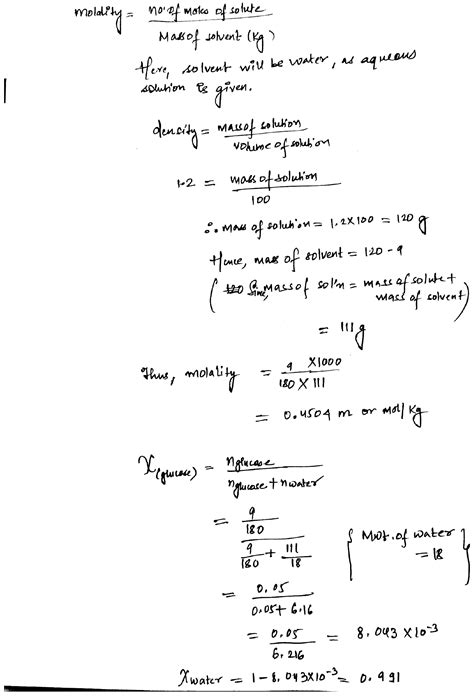 molality = no. of moles of solute
Mass of solvent (kg)
Here, solvent will be water, as aqueous
solution is given.
density = mass of solution
volume of solution
1.2 = mass of solution
100
∴ mass of solution = 1.2×100 = 120 g
Hence, mass of solvent = 120 - 9
( Since, mass of sol'n = mass of solute +
mass of solvent)
= 111 g
Thus, molality = 9 ×1000
180 × 111
= 0.4504 m or mol/kg
X(glucose) = nglucose
nglucose + nwater
= 9
180
9 + 111
180 18
{ Mwt. of water
= 18 }
= 0.05
0.05 + 6.16
= 0.05 = 8.043 ×10-3
6.216
Xwater = 1 - 8.043×10-3 = 0.991